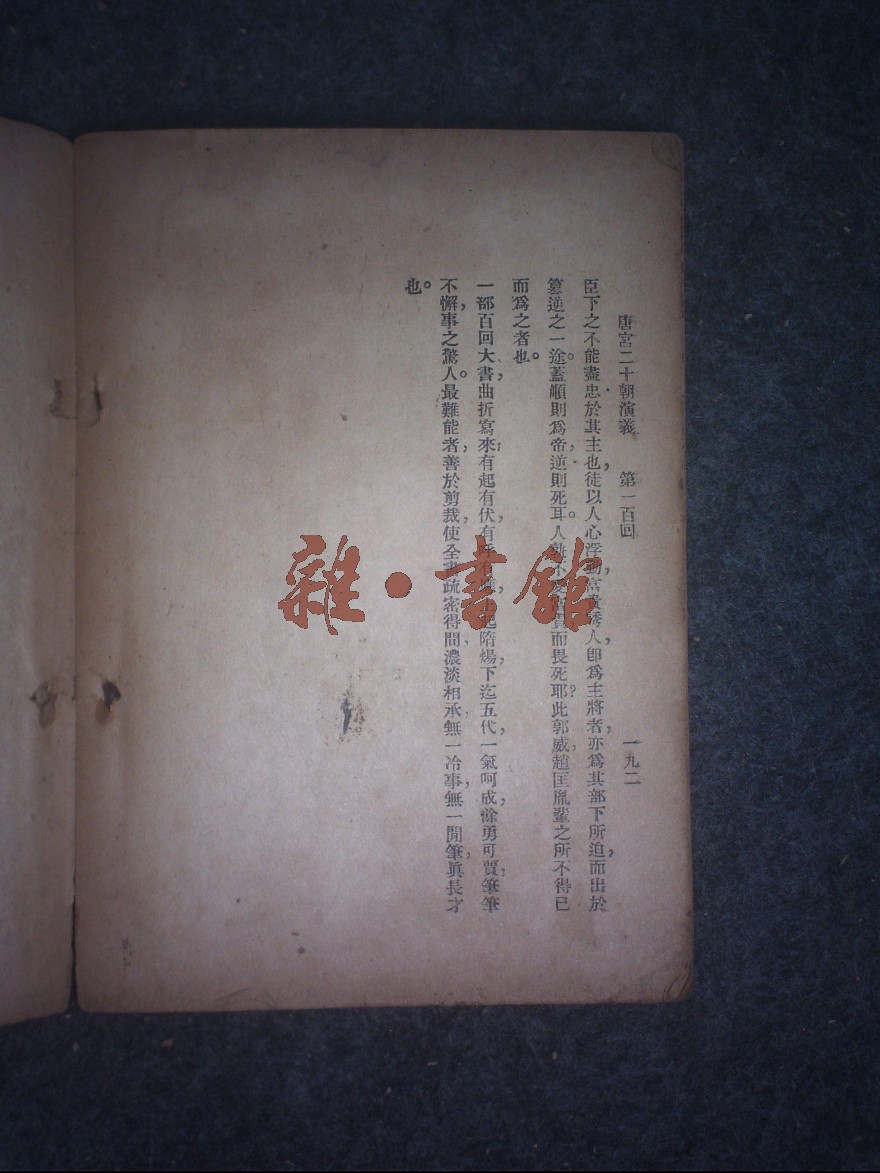 唐宮二十朝演義　第一百回　一九二
臣下之不能盡忠於其主也，徒以人心浮動，富貴誘人，卽爲主將者，亦爲其部下所迫，而出於
篡逆之一途。蓋順則爲帝，逆則死耳。人孰不愛富貴而畏死耶？此郭威趙匡胤輩之所不得已
而爲之者也。
一部百回大書，曲折寫來，有起有伏，有呼有應，上起隋煬，下迄五代，一氣呵成，餘勇可賈，筆筆
不懈，事之驚人。最難能者，善於剪裁，使全書疏密得間，濃淡相承，無一冷事，無一閒筆，眞長才
也。
雜·書館